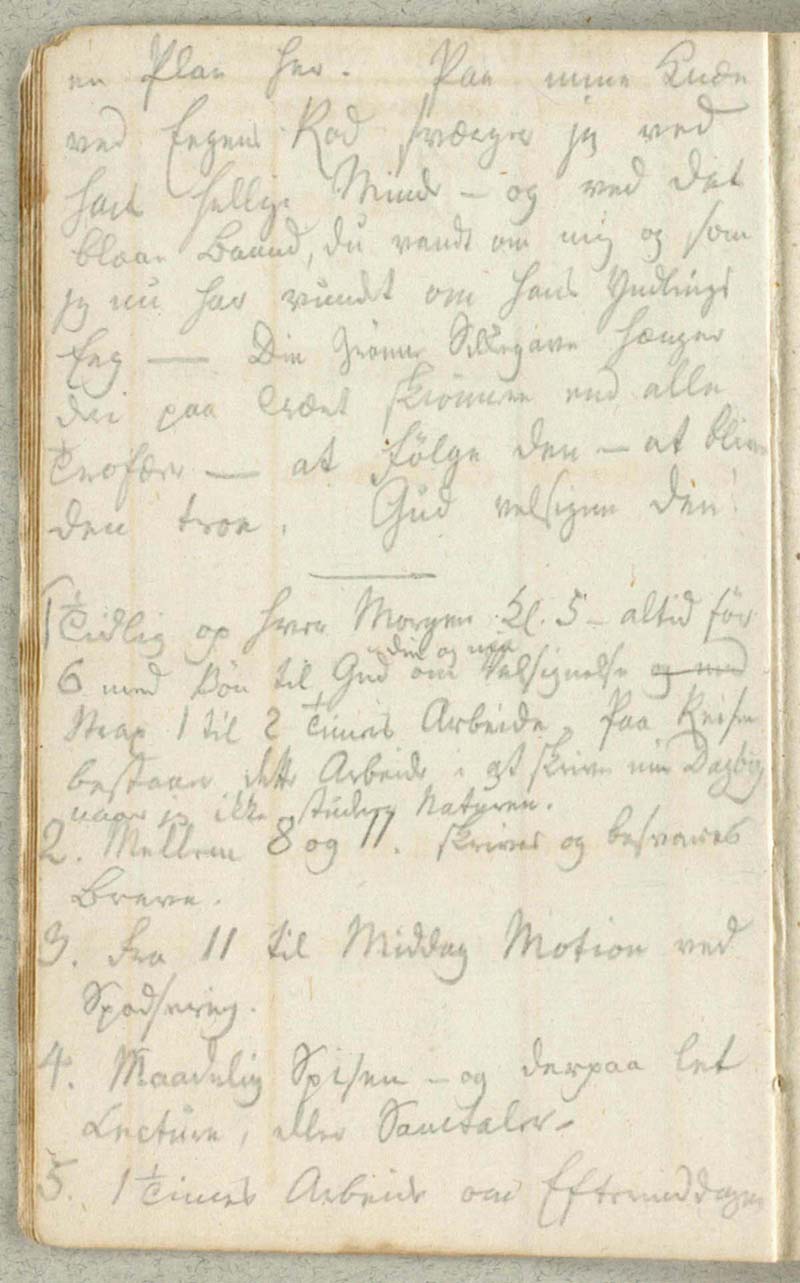 en Plan her. Paa mine Knæ
ved Egens Rod sværger jeg ved
hans hellige Minde – og ved det
blaae Baand, du vandt om mig og som
jeg nu har vundet om hans Yndlings
Eeg — Din grønne Silkegave hænger
der paa Træet skiønnere end alle
Trofæer — at følge den – at blive
den troe. Gud velsigne den!
1 Tidlig op hver Morgen Kl. 5 – altid før
din og min
6 med Bøn til Gud om Velsignelse og med
Strax 1 til 2 Times Arbeide. Paa Reisen
bestaaer dette Arbeide i at skrive min Dagbog
naar jeg ikke studerer Naturen.
2. Mellem 8 og 11. skrives og besvares
Breve.
3. Fra 11 til Middag Motion ved
Spadsering.
4. Maadelig Spisen – og derpaa let
Lecture, eller Samtaler –
5. 1 Times Arbeide om Eftermiddagen